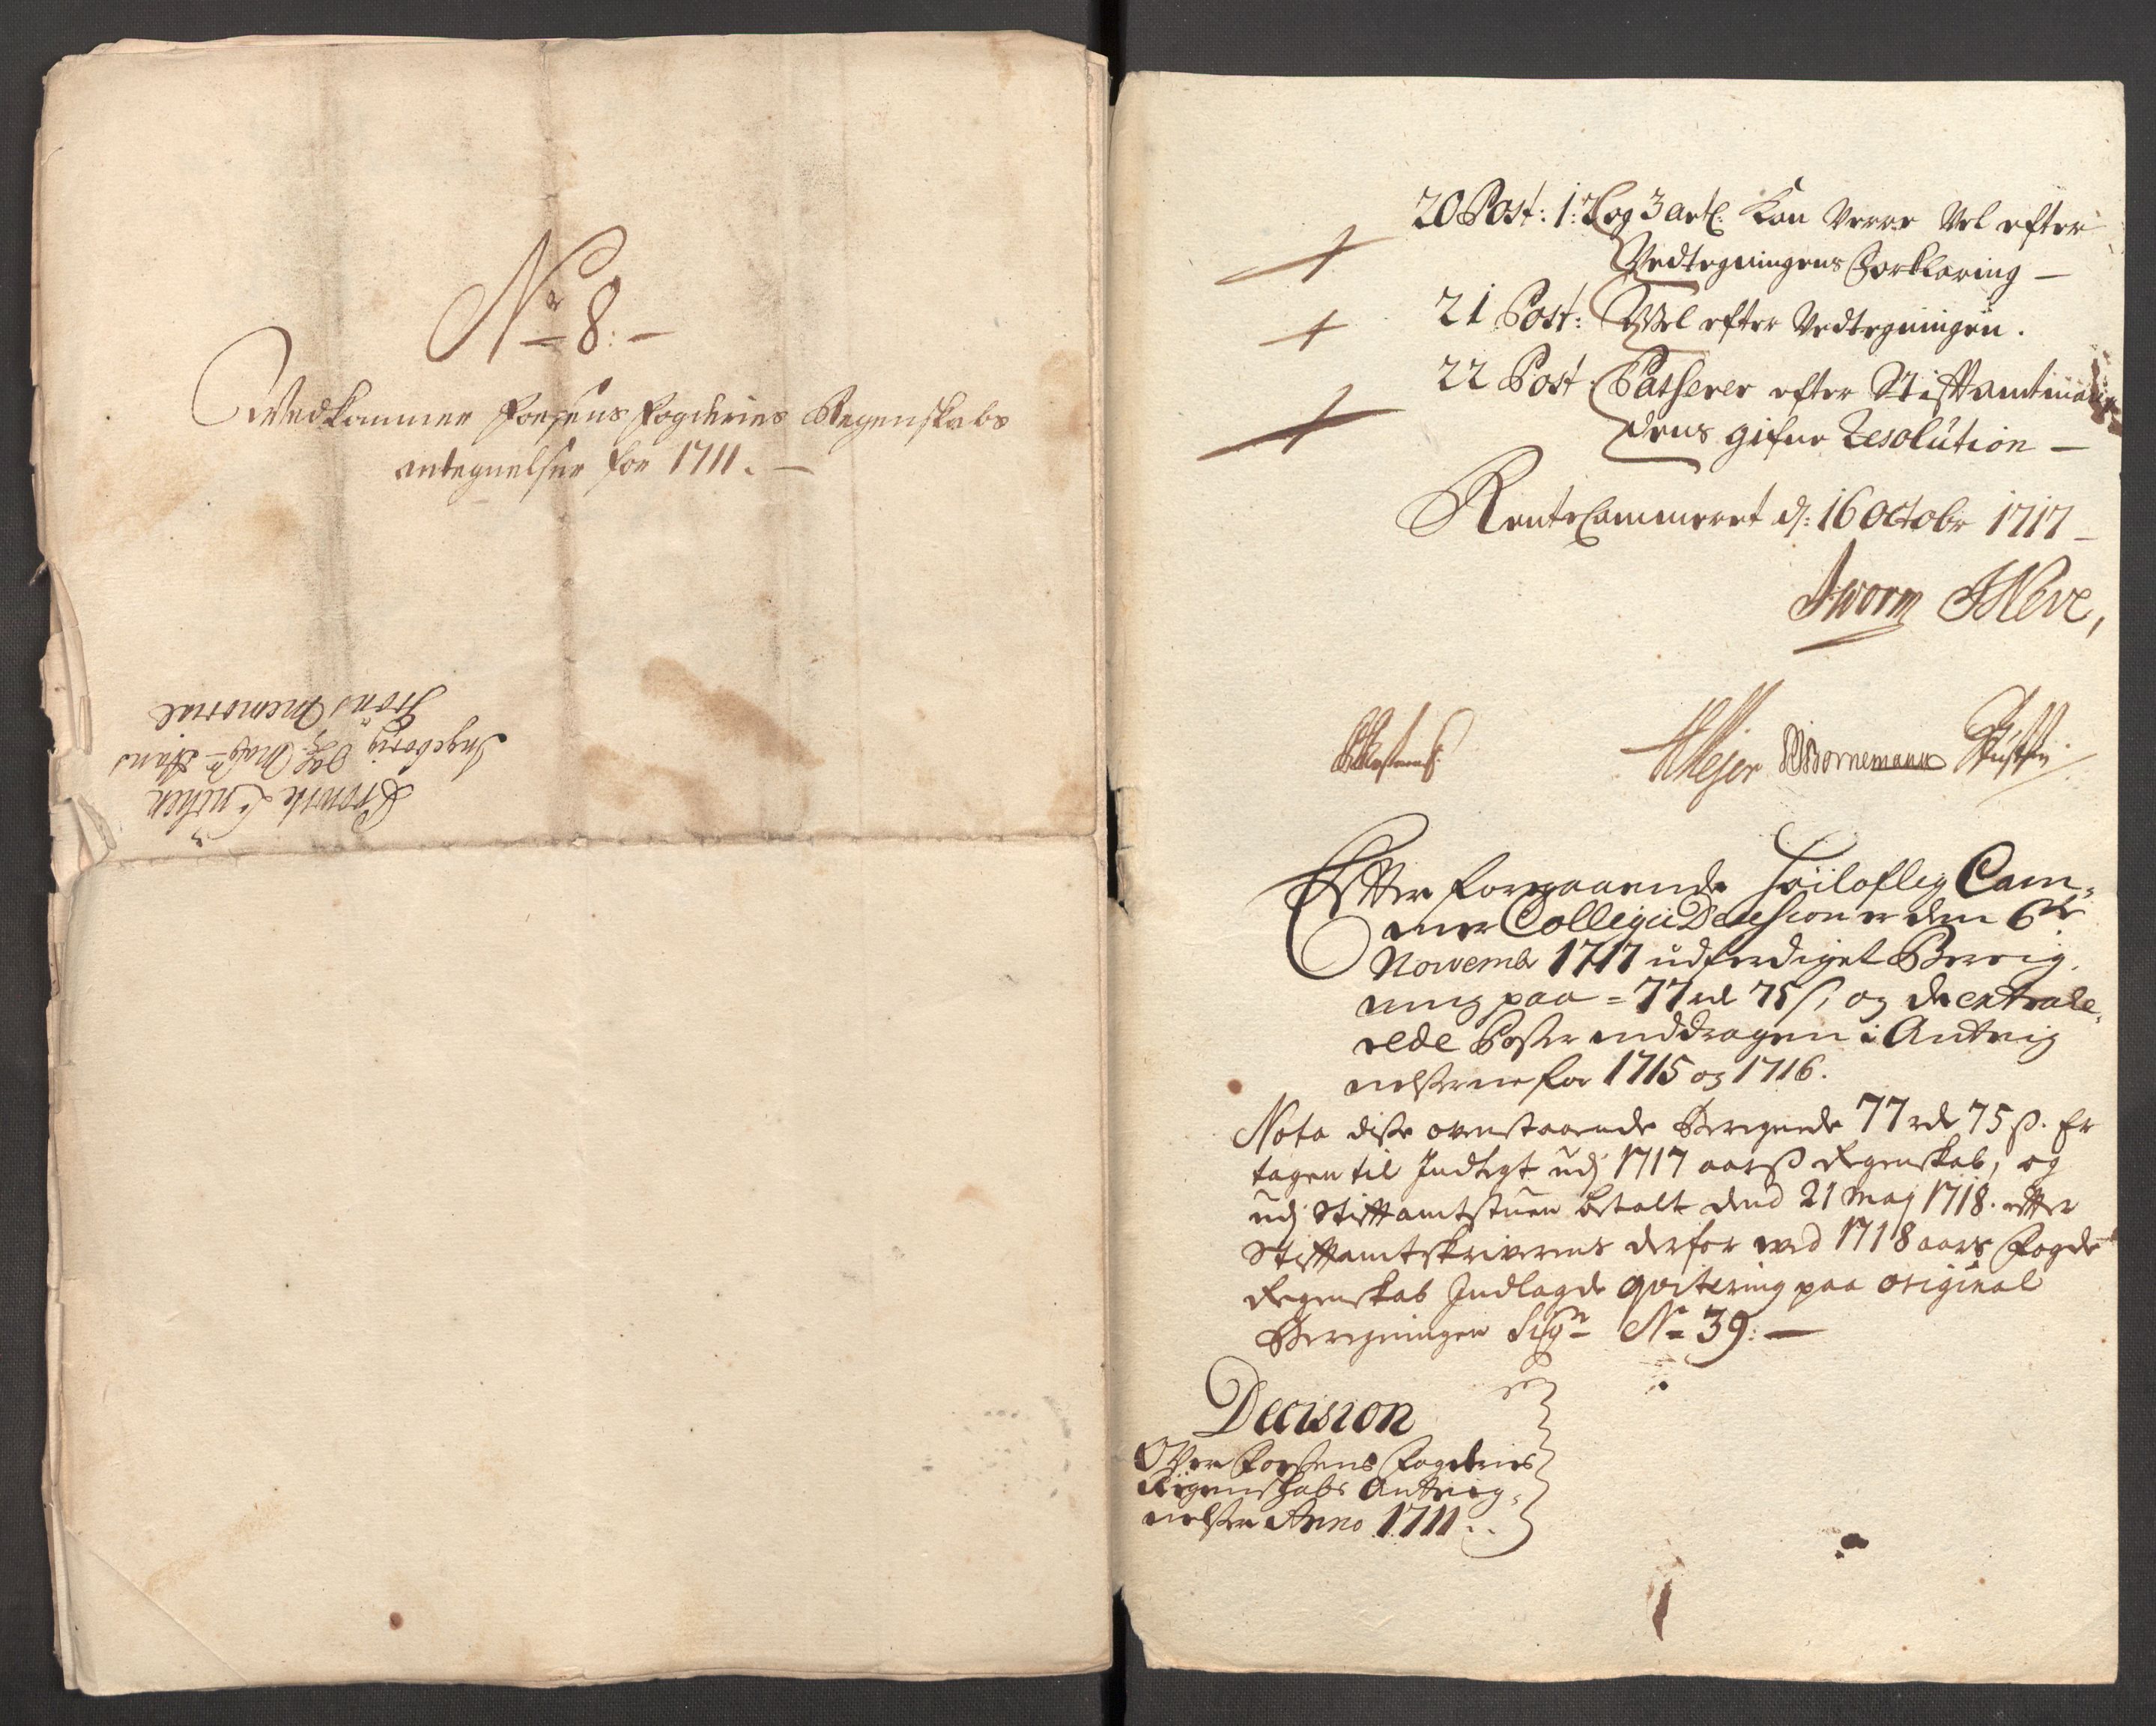 No 8:
Vedkommer Foesens Fogderies Regenskabs
antegnelser for 1711.
Ingeborig Mag Hans
Memorial
20 Post: 1: 2 og 3 art: Kan Være Vel efter
Vedtegningens Forklaring
21 Post: Vel efter Vedtegningen.
22 Post Passerer efter Stiftamtman
dens gifne Resolution
RenteCammeret d: 16 Octobr 1717
JWorm JNeve,
HMejer Bornemann
Efter foregaaende Höiloflig Cam-
mer Collegii Decision er den 6te
Novembr 1717 udferdiget Bereig-
ning paa = 77 rd 75 s, og de extrade-
rede Poster inddragen i Anteig
nelserne for 1715 og 1716.
Nota disse ovenstaaende Beregnede 77 rd 75 s. Er
tagen til Indtegt udj 1717 aars Regenskab, og
udj Stiftamtstuen betalt dend 21 Maj 1718. efter
Stiftamtskriverens derfor ved 1718 aars Fogde
Regenskab Indlagde qvitering paa original
Beregningen Sign No 39:
Decision
Over Foesens Fogderies
Regenskabs Anteig-
nelser Anno 1711.